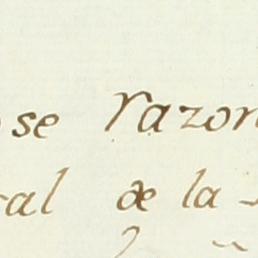 se razon
ral de la